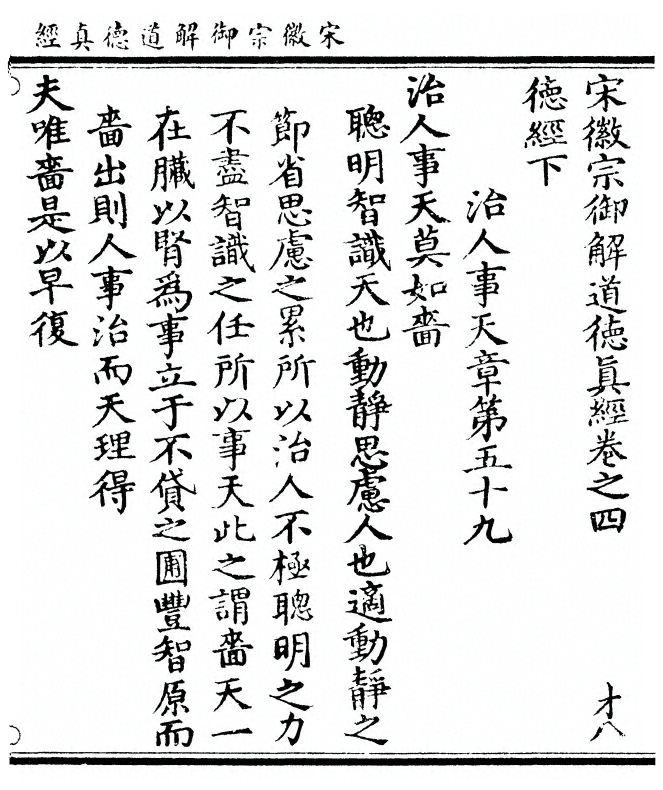 宋徽宗御解道德真經
宋徽宗御解道德眞經卷之四
才八
德經下
治人事天章第五十九
治人事天莫如嗇
聰明智識天也動靜思慮人也適動靜之
節省思慮之累所以治人不極聰明之力
不盡智識之任所以事天此之謂嗇天一
在臟以腎爲事立于不貸之圃豐智原而
嗇出則人事治而天理得
夫唯嗇是以早復